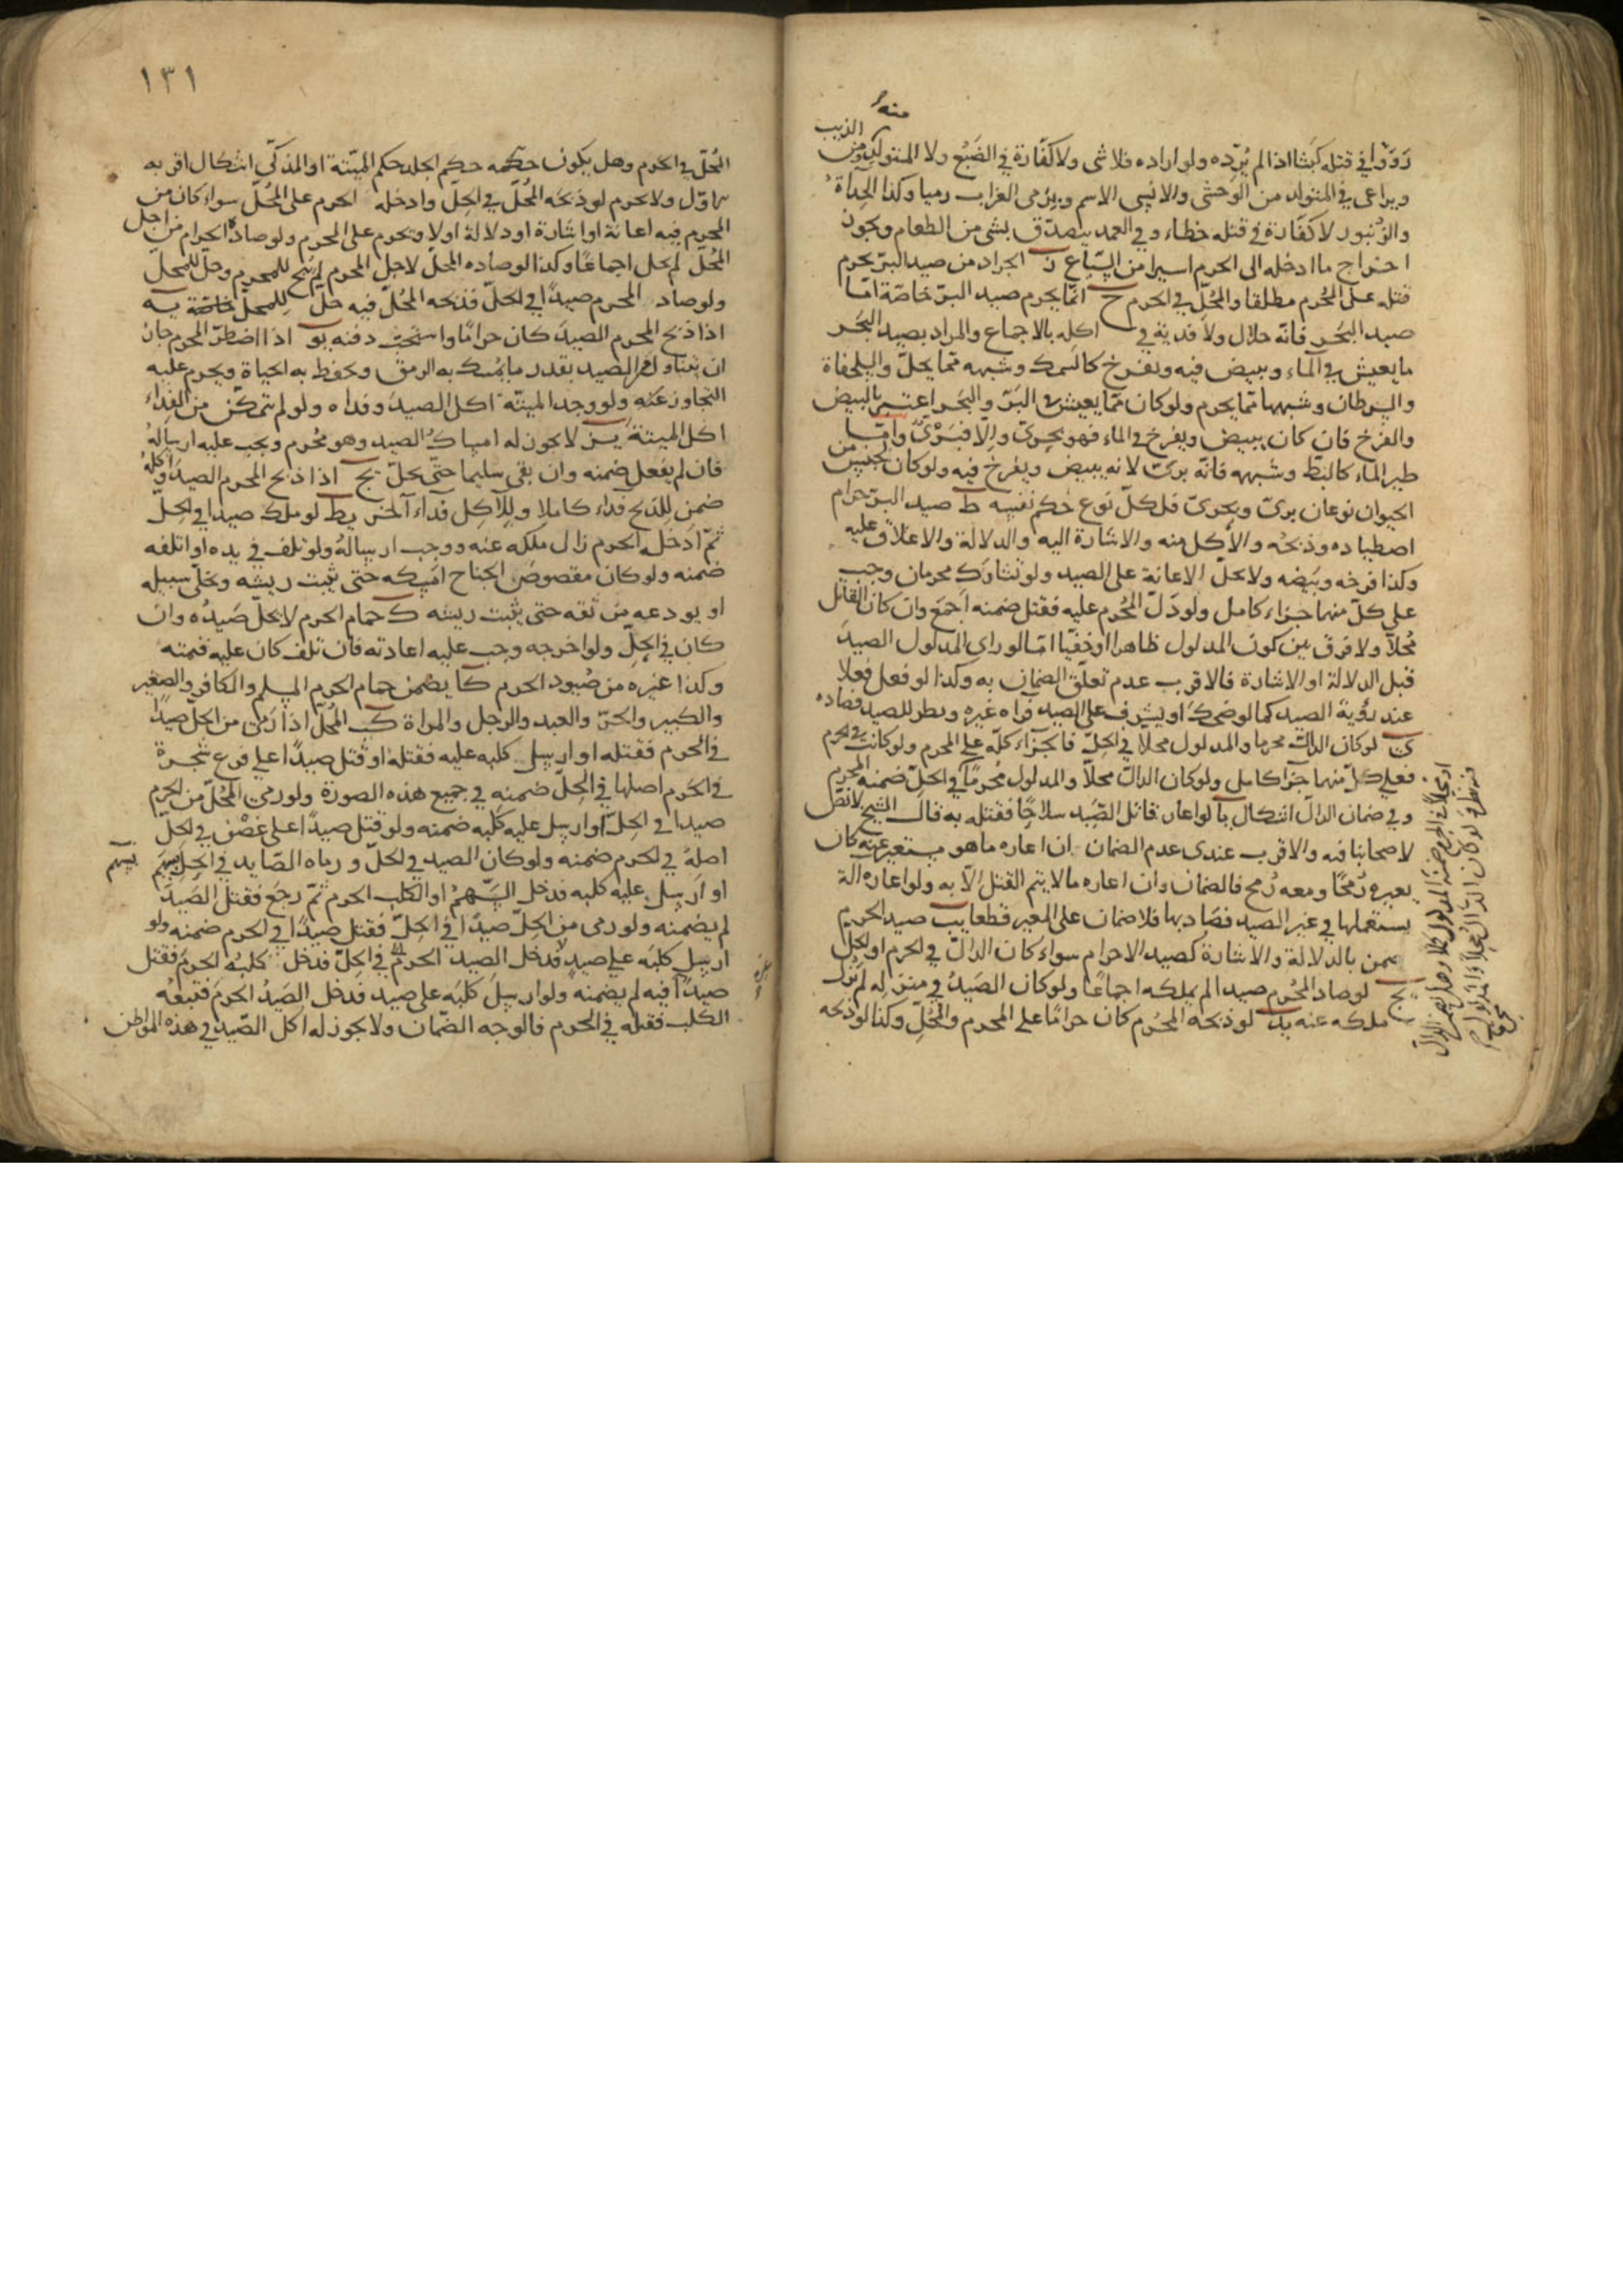 منه
الذيب
رَوَوْا في قتله كبشا اذا لم يُرِده ولو اراده فلا شى ولا كفّارة في الضبُع ولا المتولّد من
ويراعى في المتولد من الوحشى والانسى الاسم ويرمى الغراب رميا وكذا الحِدأة
والزُنبور لا كفّارة في قتله خطاء وفي العمد يتصدّق بشى من الطعام ويجوز
اخراج ما ادخله الى الحرم اسيرا من السّباع ز الجراد من صيد البرّ يحرم
قتله على المُحرم مطلقا والمُحلّ في الحرم ح انما يحرم صيد البرّ خاصّة امّا
صيد البَحْر فانّه حلال ولا فدية في اكله بالاجماع والمراد بصيد البَحْر
ما يعيش في الماء ويبيض فيه ويفرخ كالسمك وشبهه ممّا يحلّ والسلحفاة
والسرطان وشبهها ممّا يحرم ولو كان ممّا يعيش في البَرّ والبَحْر اعتبر بالبيض
والفرخ فان كان يبيض ويفرخ في الماء فهو بحرىّ والّا فبَرّىّ وامّا
طير الماء كالبطّ وشبهه فانّه برىّ لانه يبيض ويفرخ فيه ولو كان لجنس من
الحيوان نوعان برىّ وبحرىّ فلكلّ نوع حُكم نفسه ط صيد البرّ حرام
اصطياده وذبحُه والاكل منه والاشارة اليه والدلالة والاغلاق عليه
وكذا فرخه وبَيضه ولا يحلّ الاعانة على الصيد ولو تشارك محرمان وجب
على كلّ منهما جزاء كامل ولو دَلّ المُحرم عليه فقتل ضمنه اَجمَعَ وان كان القاتل
مُحلّا ولا فرق بين كون المدلول ظاهرا او خفيّا امّا لو راى المدلول الصيد
قبل الدلالة او الاشارة فالاقرب عدم تعلّق الضمان به وكذا لو فعل فعلا
عند رؤية الصيد كما لو ضحك او يشرف على الصيد فرآه غيره ونظر للصيد فصاده
لو كان الدالّ محرما والمدلول محلا في الحِلّ فالجزاء كلّه على المحرم ولو كانت في الحرم
فعلى كلّ منهما جزا كامل ولو كان الدالّ محلّا والمدلول مُحرمًا في الحِلّ ضمنه المحرم
وفي ضمان الدالّ اشكال يا لو اعار قاتل الصّيد سلاحًا فقتله به قال الشيخ لا نصّ
لاصحابنا فيه والاقرب عندى عدم الضمان ان اعاره ما هو مستغن عنه كان
يعيره رُمحًا ومعه رُمح فالضمان وان اعاره ما لا يتم القتل الّا به ولو اعاره آلة
يستعملها في غير الصيد فصاد بها فلا ضمان على المعير قطعا يب صيد الحرم
يضمن بالدلالة والاشارة كصيد الاحرام سواء كان الدالّ في الحرم او الحل
يج لو صاد المُحرم صيدا لم يملكه اجماعًا ولو كان الصَيدُ في منزله لم يَزُل
ملكه عنه يد لو ذبحه المحُرم كان حرامًا على المحرم والمُحلّ وكذا لو ذبحه
١٣١
المُحلّ في الحرم وهل يكون حكمه حكم الجلد حكم الميّتة او المذكّى اشكال اقربه
الاوّل ولا يحرم لو ذبحَه المُحلّ في الحلّ وادخله الحرم على المُحلّ سواء كان من
المحرم فيه اعانة او اشارة او دلالة اولا ويحرم على المحرم ولو صاده الحرام من اجل
المُحلّ لم يحل اجماعًا وكذا لو صاده المحلّ لاجل المحرم لم يُبح للمحرم وحلّ للمحلّ
ولو صاد المحرم صيدًا في الحلّ فذبحه المُحلّ فيه حلّ للمحلّ خاصّة يه
اذا ذبح المحرم الصيدَ كان حرامًا واستحبّ دفنه يو اذا اضطرّ المحرم جاز
ان يتناول الصيد بقدر ما يمسك به الرمق ويحفظ به الحياة ويحرم عليه
التجاوز عنه ولو وجد الميتة اكل الصيد وفداه ولو لم يتمكّن من الفداء
اكل الميتة يز لا يجوز له امساك الصيد وهو مُحرم ويجب عليه ارسالُه
فان لم يفعل ضمنه وان بقى سليما حتّى يحلّ يح اذا ذبح المحرم الصيدَ واكله
ضمن للذبح فداء كاملا وللآكل فداء آخر يط لو ملك صيدا في الحِلّ
ثمّ ادخله الحرم زال ملكه عنه ووجب ارسالهُ ولو تلف في يده او اتلفه
ضمنه ولو كان مقصوص الجناح امسكه حتى ينبت ريشه ويخلّى سبيله
او يودعه من ثقه حتى ينبت ريشه ك حمام الحرم لا يحلّ صَيدُه وان
كان في الحِلّ ولو اخرجه وجب عليه اعادته فان تلف كان عليه قيمته
وكذا غيره من صُيود الحرم كا يضمن حمام الحرم المسلم والكافر والصغير
والكبير والحرّ والعبد والرجل والمراة كب المُحلّ اذا رمى من الحلّ صيدًا
في الحرم فقتله او ارسل كلبه عليه فقتله او قتل صيدًا على فرع شجرة
في الحَرم اصلها في الحِلّ ضمنه في جميع هذه الصورة ولو رمى المُحلّ من الحرم
صيدا في الحِلّ او ارسل عليه كلبَه ضمنه ولو قتل صيدًا على غصْن في الحلّ
اصلهُ في الحرم ضمنه ولو كان الصيد في الحلّ ورماه الصّايد في الحِلّ بسَهم
بسهم
او ارسل عليه كلبه فدخل السّهمُ او الكلب الحرم ثمّ رجَعَ فقتل الصَيدَ
لم يضمنه ولو رمى من الحِلّ صيدًا في الحِلّ فقتل صيدًا في الحرم ضمنه ولو
ارسل كلبَه على صيد فدخل الصيد الحرمَ في الحِلّ فدخل كلبُه الحرمَ فقتل
صيدًا فيه لم يضمنه ولو ارسلَ كلبَه على صيد فدخل الصَيدُ الحرمَ فتبعهُ
الكلب فقتله في الحرم فالوجه الضّمان ولا يجوز له اكل الصّيد في هذه المواطن